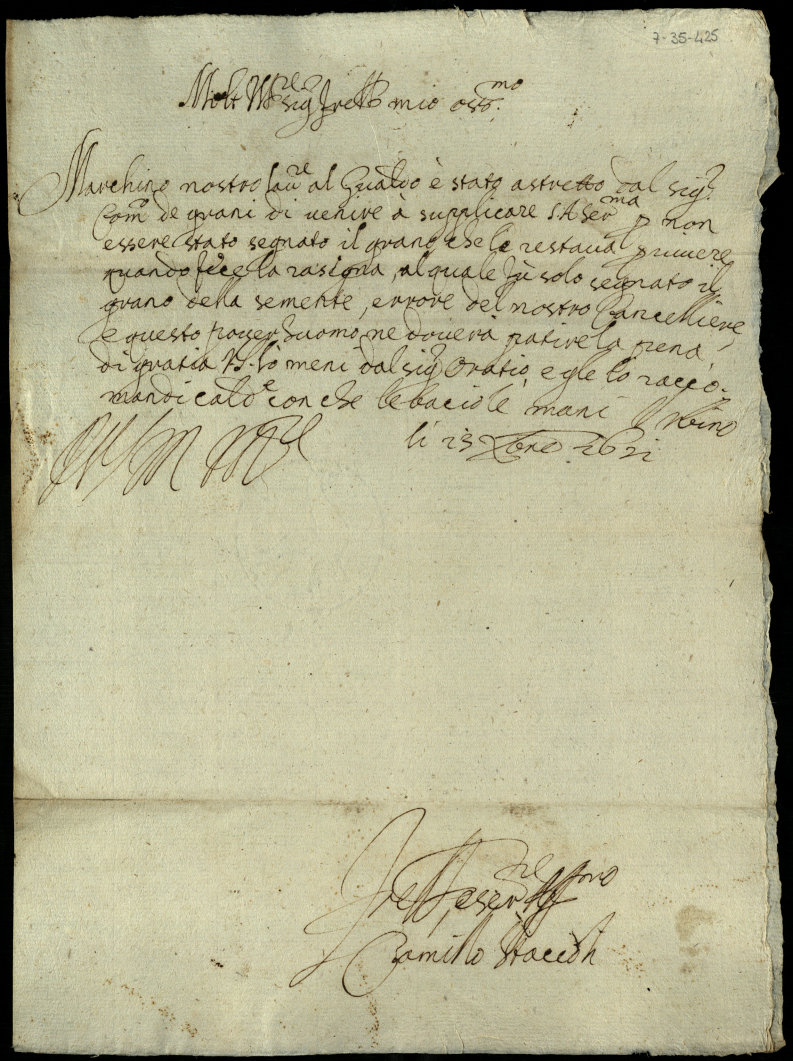 7-35-425
Molt Ill.re sig.r fratello mio oss.mo
Marchino nostro lau.re al Gualdo è stato astretto dal sig.r
Com.o de grani di uenire à supplicare S. A. Ser.ma p non
essere stato segnato il grano che le restaua p uiuere
quando fece la rasigna, al quale fù solo segnato il
grano della semente, errore del nostro Cancelliere,
e questo pouer huomo ne douerà patire la pena,
di gratia V.S. lo meni dal sig.r Oratio, e gle lo racco-
mandi cald.e con che le bacio le mani Urbino
li 23 Xbre 1621
Di V.S. M. Ill.re
fratello, e ser.re Aff.mo
Camillo Staccoli